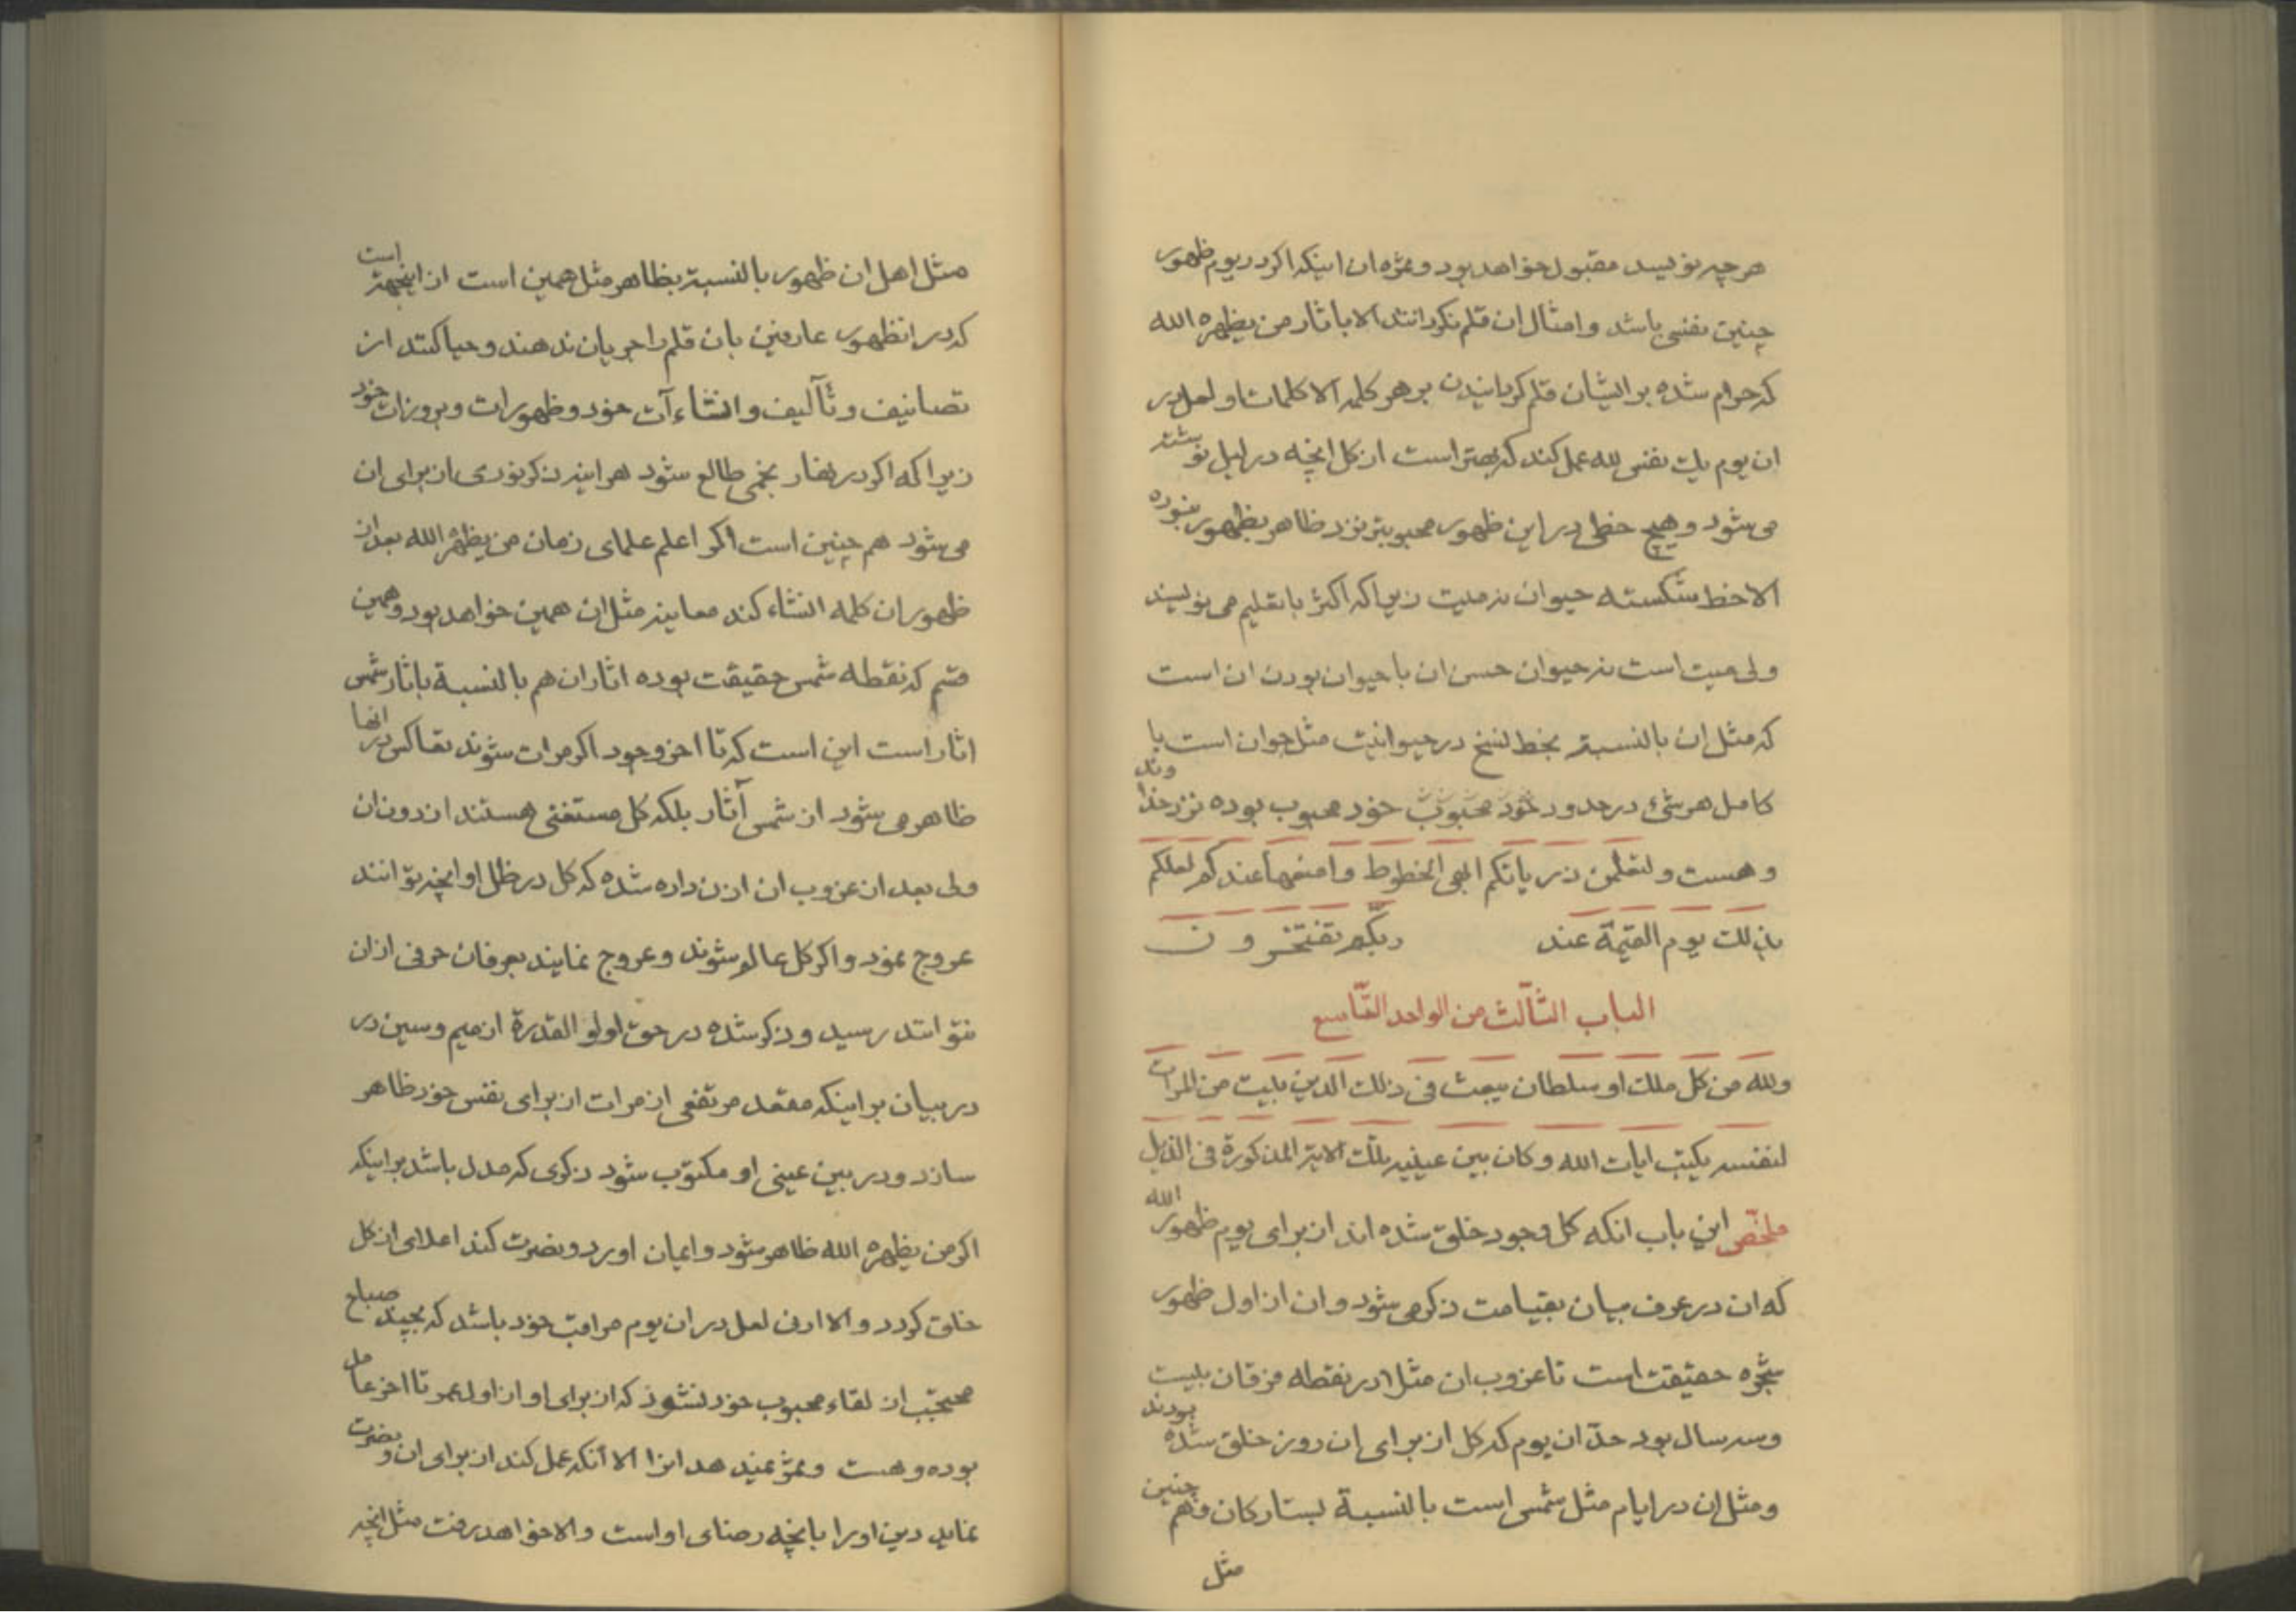 هرچه نویسد مقبول خواهد بود و ثمره ان اینکه اکر در یوم ظهور
چنین نفسی باشد و امثال ان قلم نکردانند الا باثار من یظهره الله
که حرام شده بر ایشان قلم کردانیدن بر هر کلمه الا کلمات او لعل در
ان یوم یک نفس لله عمل کند که بهتر است از کل انچه در لیل نوشته
می شود و هیچ خطی در این ظهور محبوبتر نزد ظاهر بظهور نبوده
الا خط شکسته حیوان نه میت زیرا که اکثر با تعلیم می نویسند
ولی میت است نه حیوان حسن ان با حیوان بودن ان است
که مثل ان بالنسبة بخط نسخ در حیوانیت مثل جوان است با
کامل هر شیء در حدود خود محبوب خود محبوب بوده نزد خداوند
و هست و لتعلمن ذریاتکم ابهی الخطوط و امنعها عندکم لعلکم
بذلک یوم القیمة عند ربکم تفتخرون
الباب الثالث من الواحد التاسع
ولله من کل ملک او سلطان یبعث فی ذلک الدین بیت من المرات
لنفسه یکتب ایات الله و کان بین عینیه تلک الایة المذکورة فی الذیل
ملخص این باب انکه کل وجود خلق شده اند از برای یوم ظهور الله
که ان در عرف بیان بقیامت ذکر می شود و ان از اول ظهور
شجره حقیقت است تا غروب ان مثلا در نقطه فرقان بیست
و سه سال بود حد ان یوم که کل از برای ان روز خلق شده بودند
و مثل ان در ایام مثل شمس است بالنسبة بستارکان و هم چنین
مثل
مثل اهل ان ظهور بالنسبة بظاهر مثل همین است از اینجهة است
که در انظهور عارفین بان قلم را جریان ندهند و حیا کنند از
تصانیف و تآلیف و انشاءآت خود و ظهورات و بروزات خود
زیرا که اکر در نهار نجمی طالع شود هراینه ذکر نوری از برای ان
می شود هم چنین است اکر اعلم علمای زمان من یظهره الله بعد از
ظهور ان کلمه انشاء کند معاینه مثل ان همین خواهد بود و همین
قسم که نقطه شمس حقیقت بوده اثار ان هم بالنسبة باثار شمس
اثار است این است که تا اخر وجود اکر مرات شوند تعاکس در انها
ظاهر می شود از شمس آثار بلکه کل مستغنی هستند از دون ان
ولی بعد از غروب ان اذن داده شده که کل در ظل او انچه توانند
عروج نمود و اکر کل عالم شوند و عروج نمایند بعرفان حرفی از ان
نتوانند رسید و ذکر شده در حق اولو القدرة از میم و سین در
در بیان بر اینکه مقعد مرتفعی از مرات از برای نفس خود ظاهر
سازد و در بین عینی او مکتوب شود ذکری که مدل باشد بر اینکه
اکر من یظهره الله ظاهر شود و ایمان اورد و نصرت کند اعلای از کل
خلق کردد و الا ادنی لعل در ان یوم مراقب خود باشد که بچند صباح
محتجب از لقاء محبوب خود نشود که از برای او از اول عمر تا اخر عامل
بوده و هست و ثمر نمیدهد انرا الا آنکه عمل کند از برای ان و نصرت
نماید دین او را بانچه رضای او است و الا خواهد رفت مثل انچه